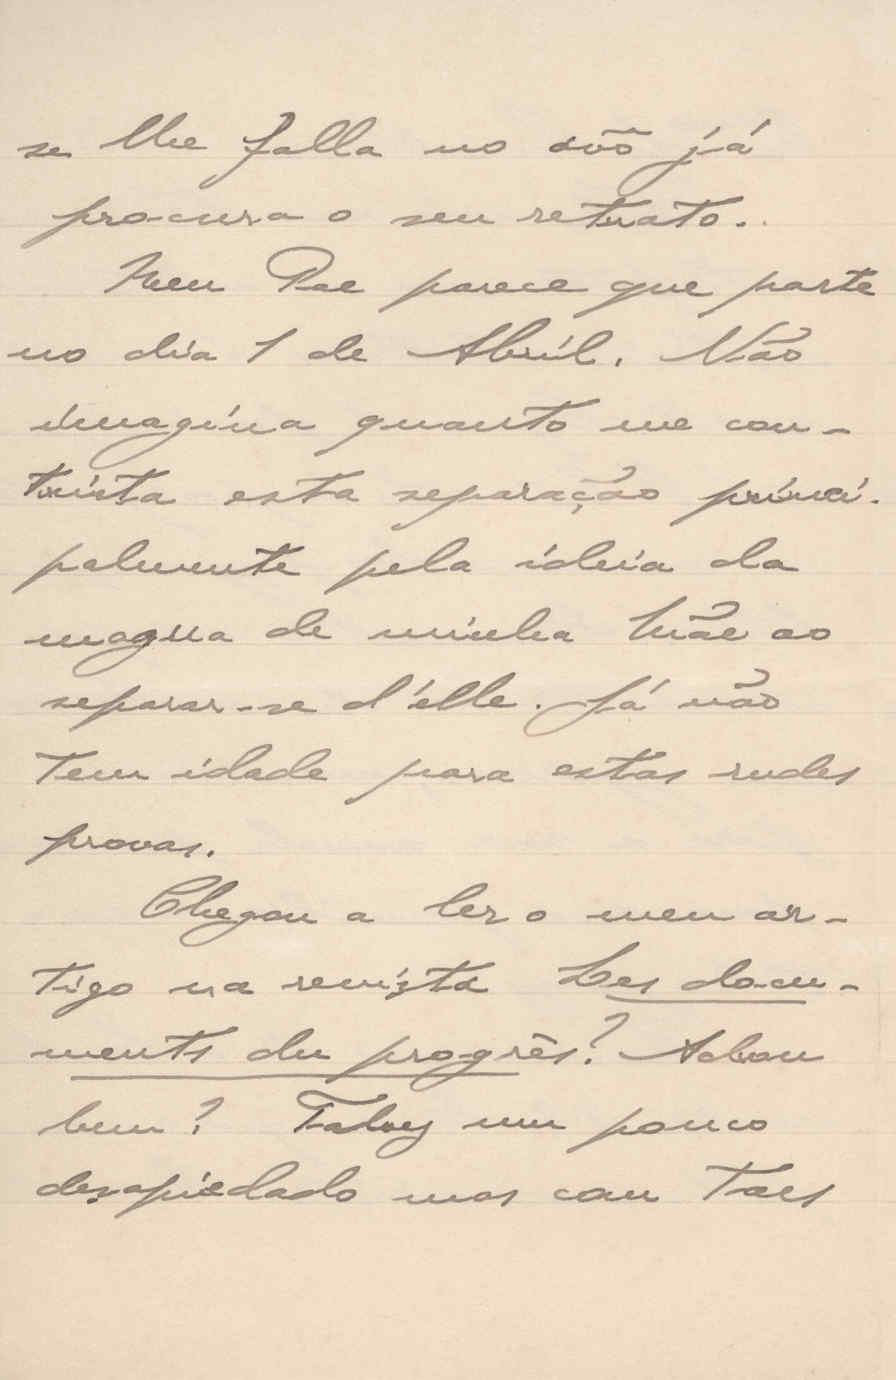 se lhe falla no avô já
procura o seu retrato.
Meu Pae parece que parte
no dia 1 de Abril. Não
imagina quanto me con-
trista esta separação princi-
palmente pela ideia da
magua de minha Mãe ao
separar-se d'elle. Já não
tem idade para estas rudes
provas.
Chegou a ler o meu ar-
tigo na revista Les docu-
ments du progrès? Achou
bem? Talvez um pouco
desapiedado mas com taes